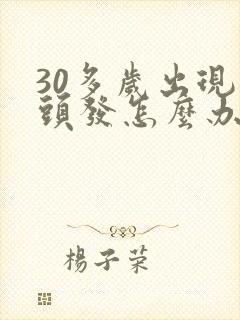 30多歲出現
頭發怎麼办
楊子荣